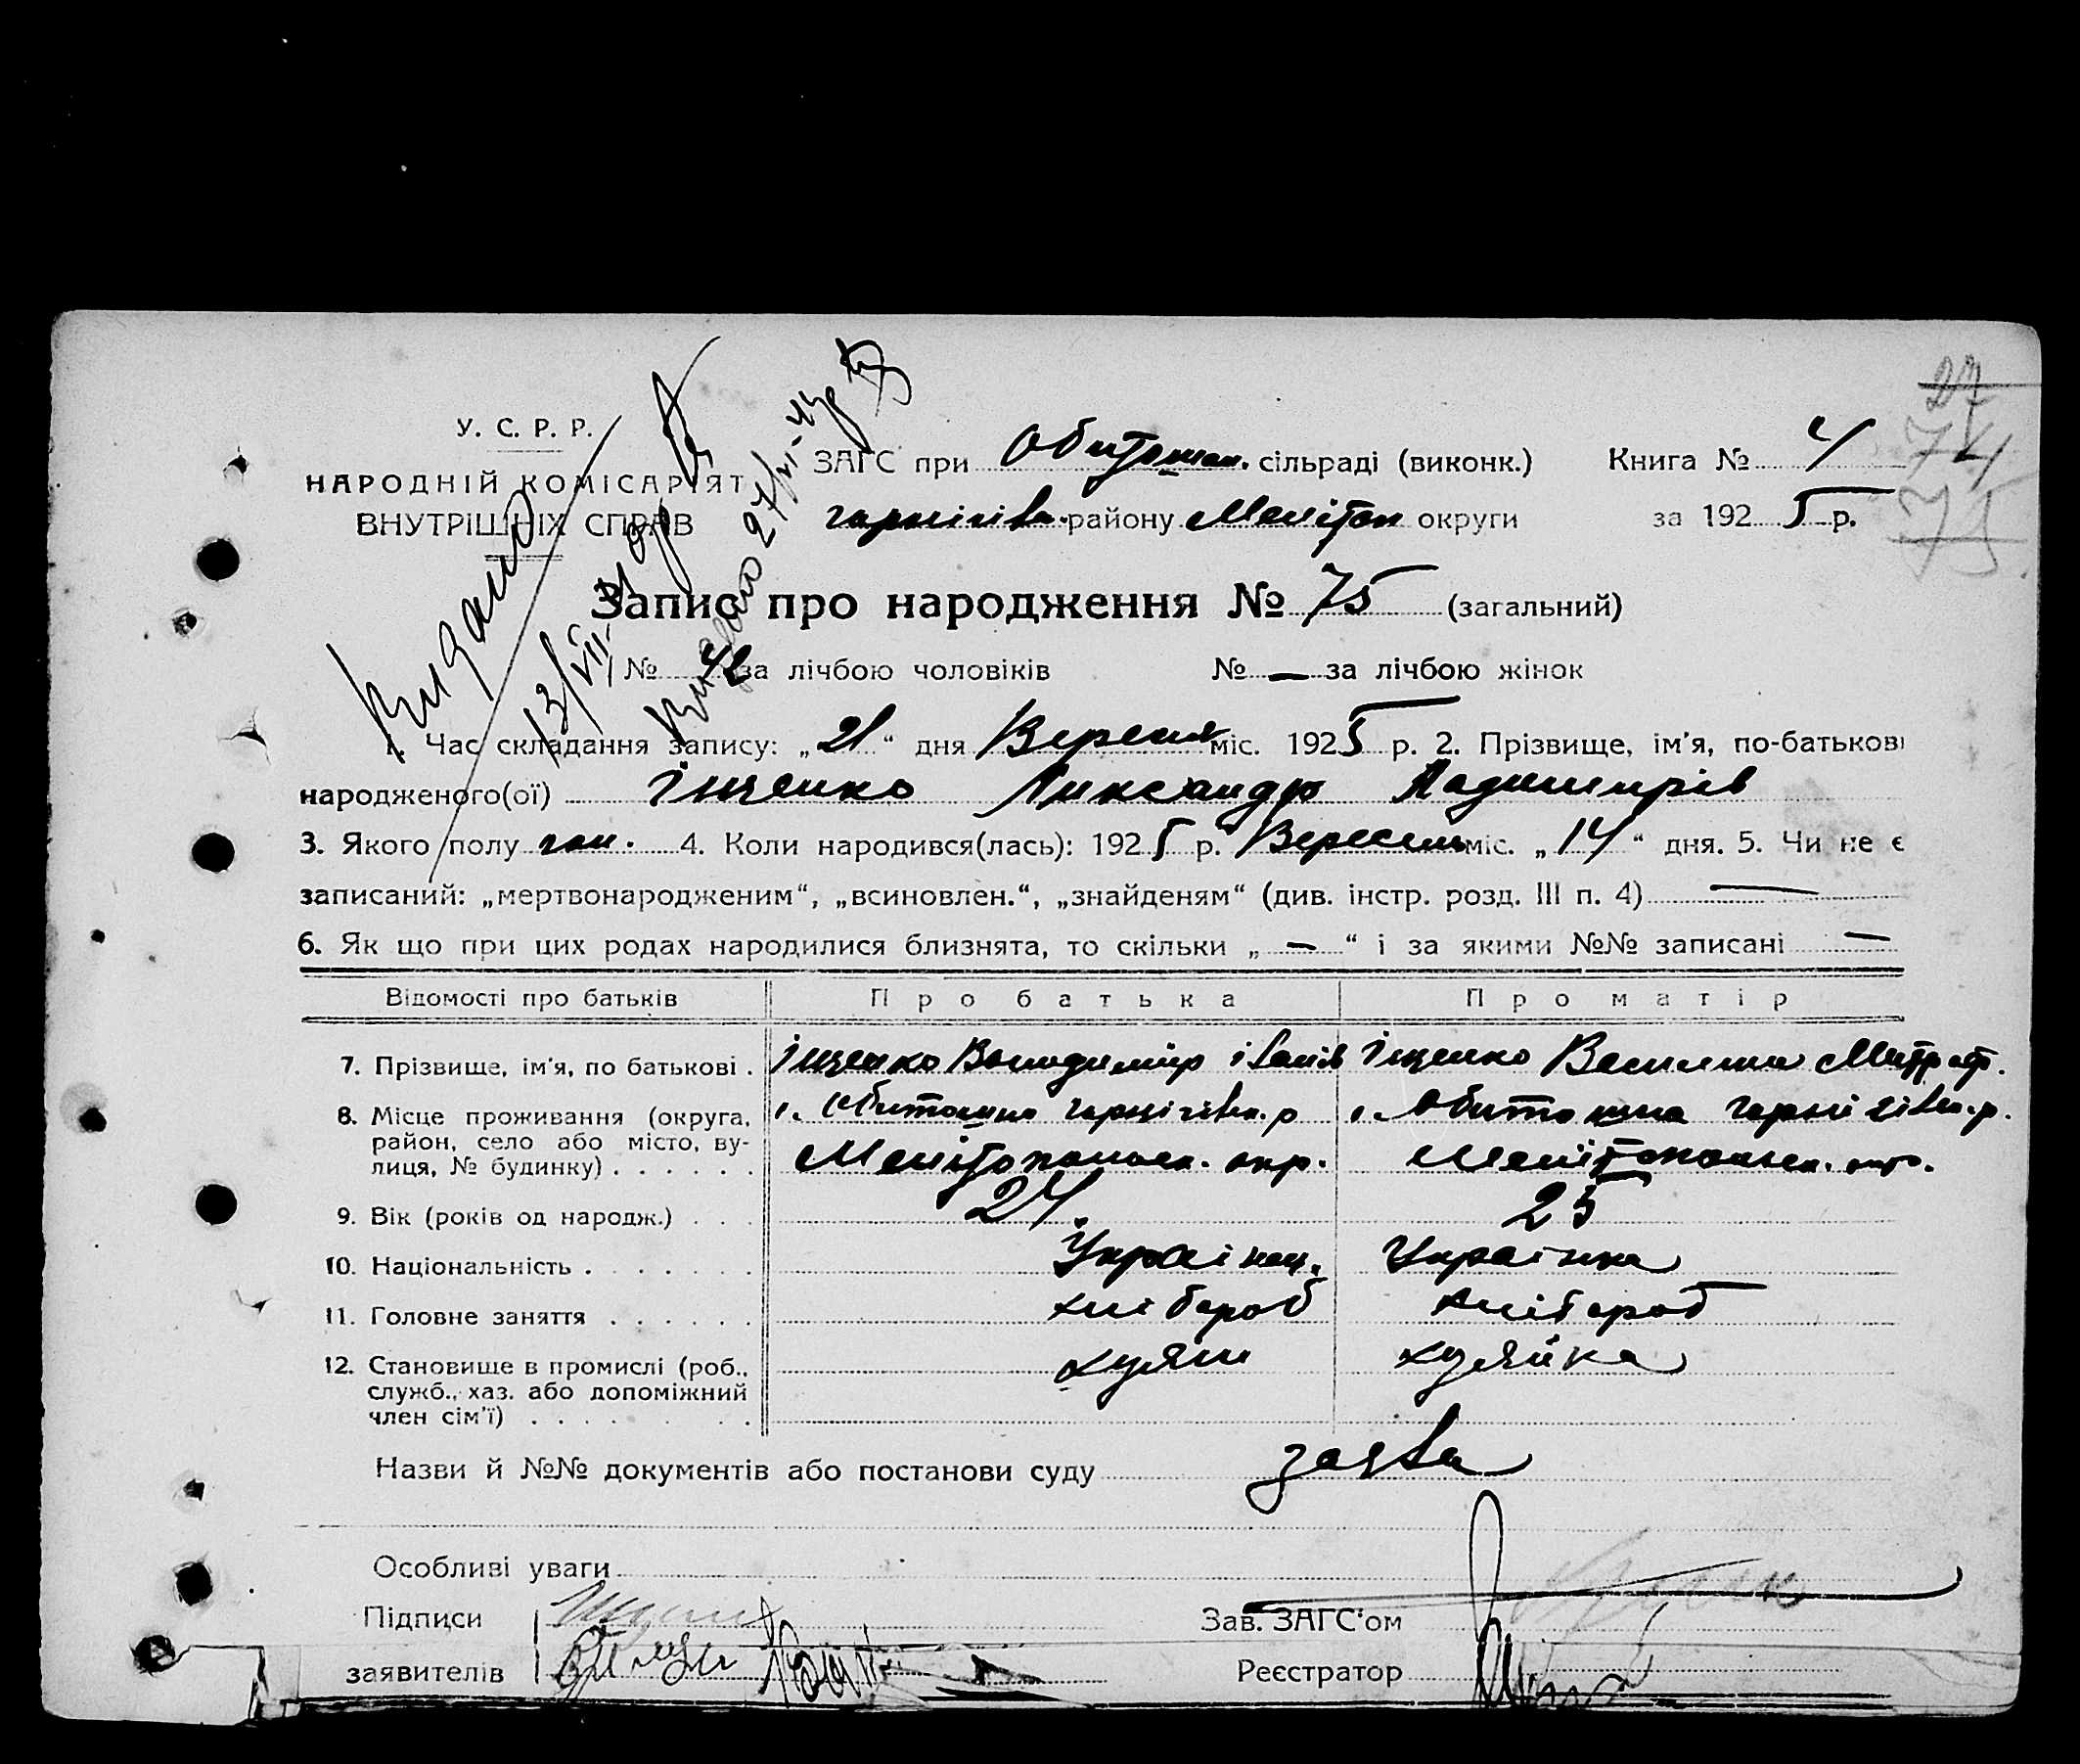 У. С. Р. Р.
НАРОДНІЙ КОМІСАРІЯТ
ВНУТРІШНІХ СПРАВ
ЗАГС при Обиточан. сільраді (виконк.) Книга № 4
району Мелітоп округи за 1925 р.
27
74
75
Видано
13/VII
Видано 27/VI-43р
Запис про народження № 75 (загальний)
№ 42 за лічбою чоловіків № — за лічбою жінок
1. Час складання запису: „21“ дня Вересня міс. 1925 р. 2. Прізвище, ім'я, по-батькові
народженого(ої) Іщенко Ликсандр
3. Якого полу чол. 4. Коли народився(лась): 1925 р. Вересень міс. „14“ дня. 5. Чи не є
записаний: „мертвонародженим“, „всиновлен.“, „знайденям“ (див. інстр. розд. III п. 4) —
6. Як що при цих родах народилися близнята, то скільки „ — “ і за якими №№ записані —
Відомості про батьків Про батька Про матір
7. Прізвище, ім'я, по батькові . Іщенко Володимир Іванів Іщенко Василина
8. Місце проживання (округа, с. Обиточна Чернігівс. р с. Обиточна Чернігівс. р.
район, село або місто, ву- Мелітопольск. окр. Мелітопольск. окр.
лиця, № будинку) . . . . . .
9. Вік (років од народж.) . . . 24 25
10. Національність . . . . . . . Українец. Українка
11. Головне заняття . . . . . . хлібороб хлібороб
12. Становище в промислі (роб., хузяин хузяйка
служб., хаз. або допоміжний
член сім'ї) . . . . . . . .
Назви й №№ документів або постанови суду заява
Особливі уваги
Підписи Зав. ЗАГС'ом
заявителів Реєстратор